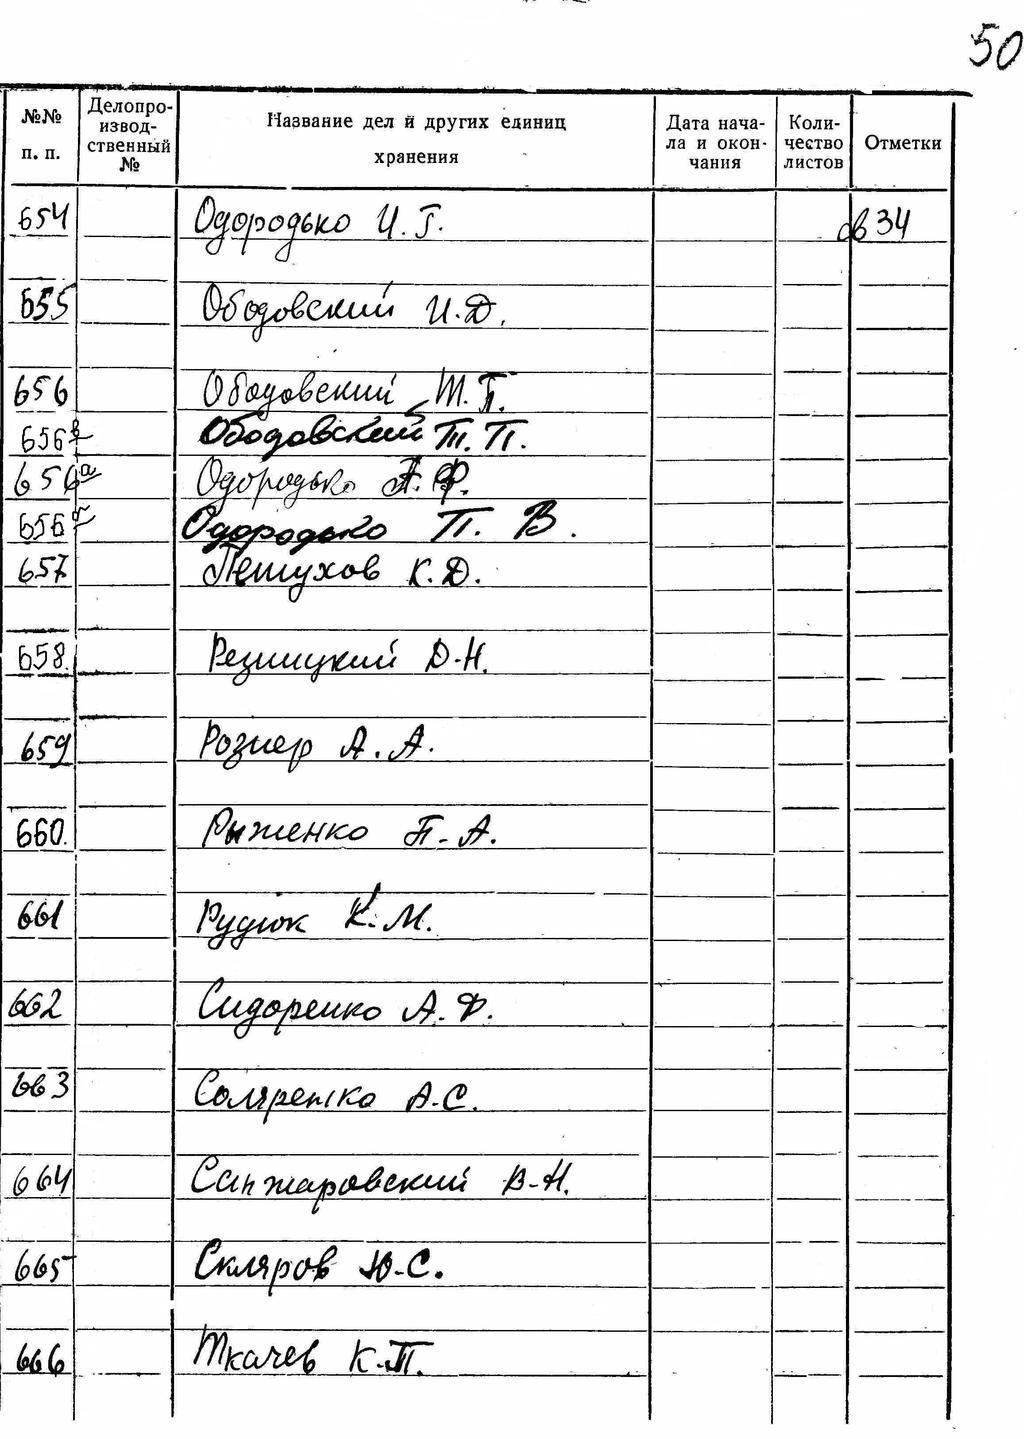 50
№№ п. п. Делопроизводственный № Название дел и других единиц хранения Дата начала и окончания Количество листов Отметки
654 Одородько И. Г. св 34
655 Ободовский И. Д.
656 Ободовский Т. П.
656в Ободовский Т. П.
656а Одородько А. Ф.
656 Одородько П. В.
657 Петухов К. Д.
658. Резницкий Д. Н.
659 Рознер А. А.
660. Рыженко П. А.
661 Рудюк К. М.
662 Сидоренко А. Ф.
663 Соляренко А. С.
664 Санжаровский В. Н.
665 Скляров Ю. С.
666 Ткачев К. Т.